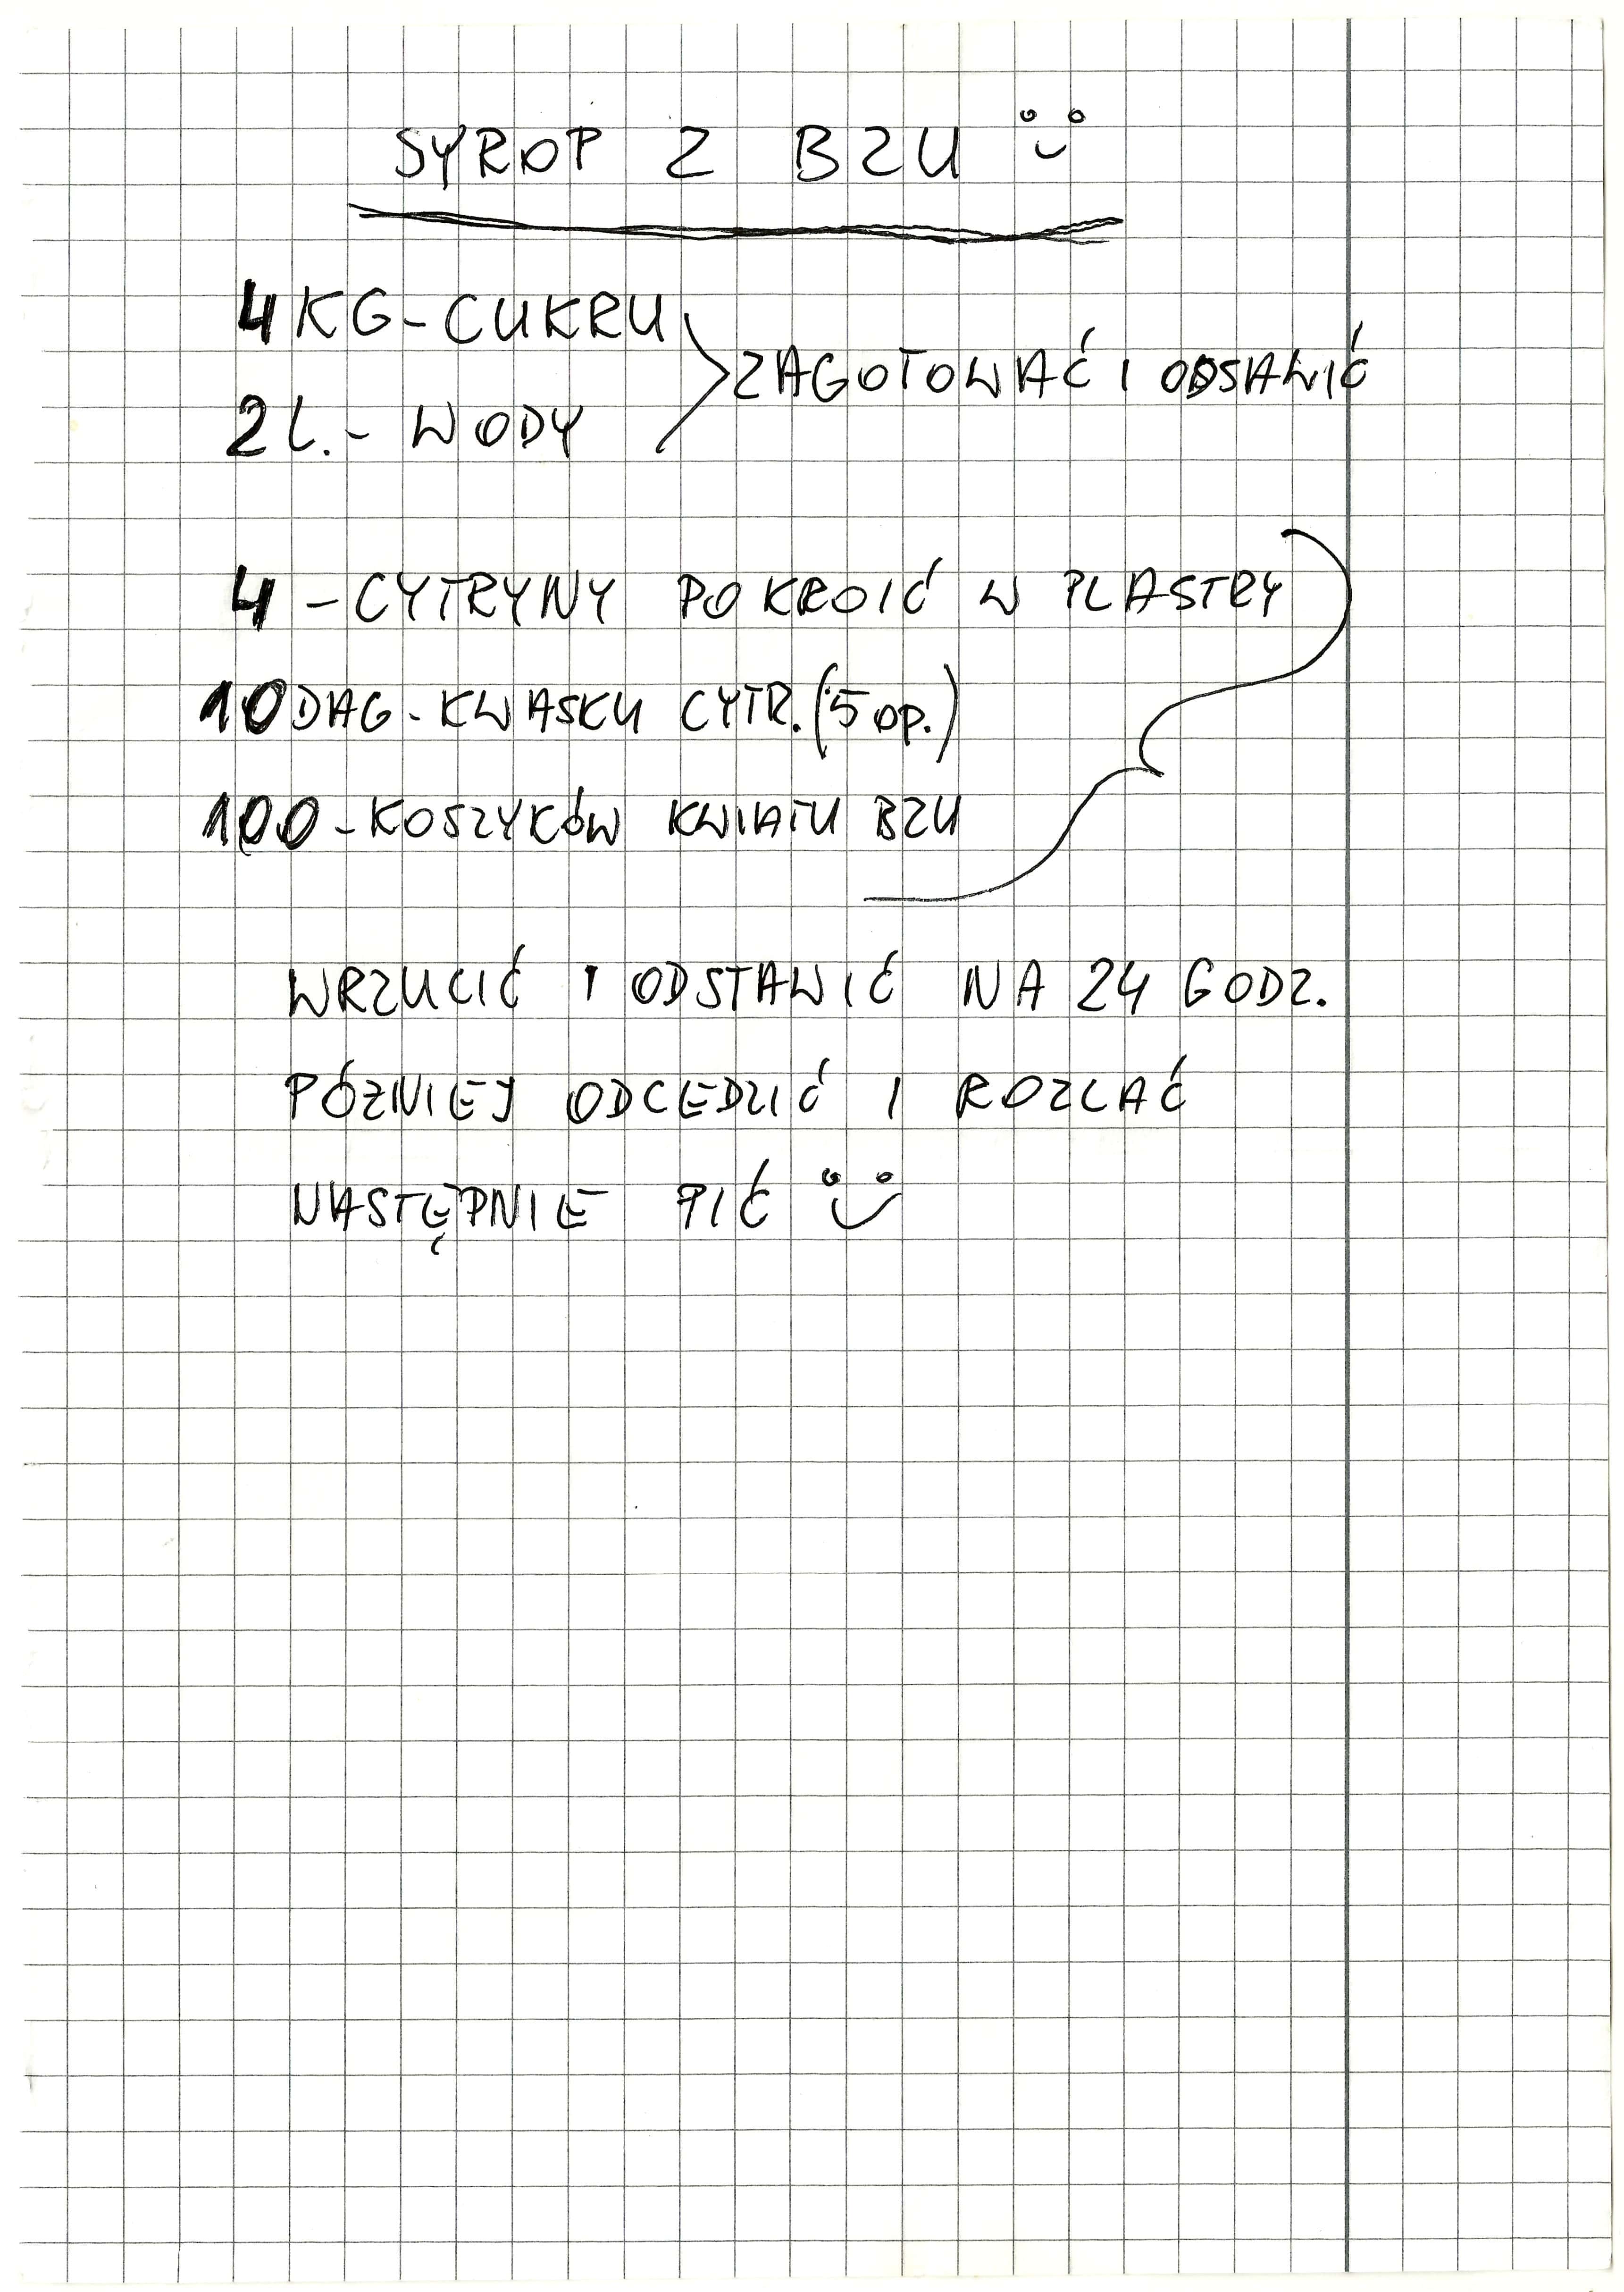 SYROP Z BZU
4 KG - CUKRU
2 L. - WODY
ZAGOTOWAĆ I ODSAWIĆ
4 - CYTRYNY POKROIĆ W PLASTRY
10 DAG - KWASKU CYTR. (5 OP.)
100 - KOSZYKÓW KWIATU BZU
WRZUCIĆ I ODSTAWIĆ NA 24 GODZ.
PÓZNIEJ ODCEDZIĆ I ROZLAĆ
NASTĘPNIE PIĆ